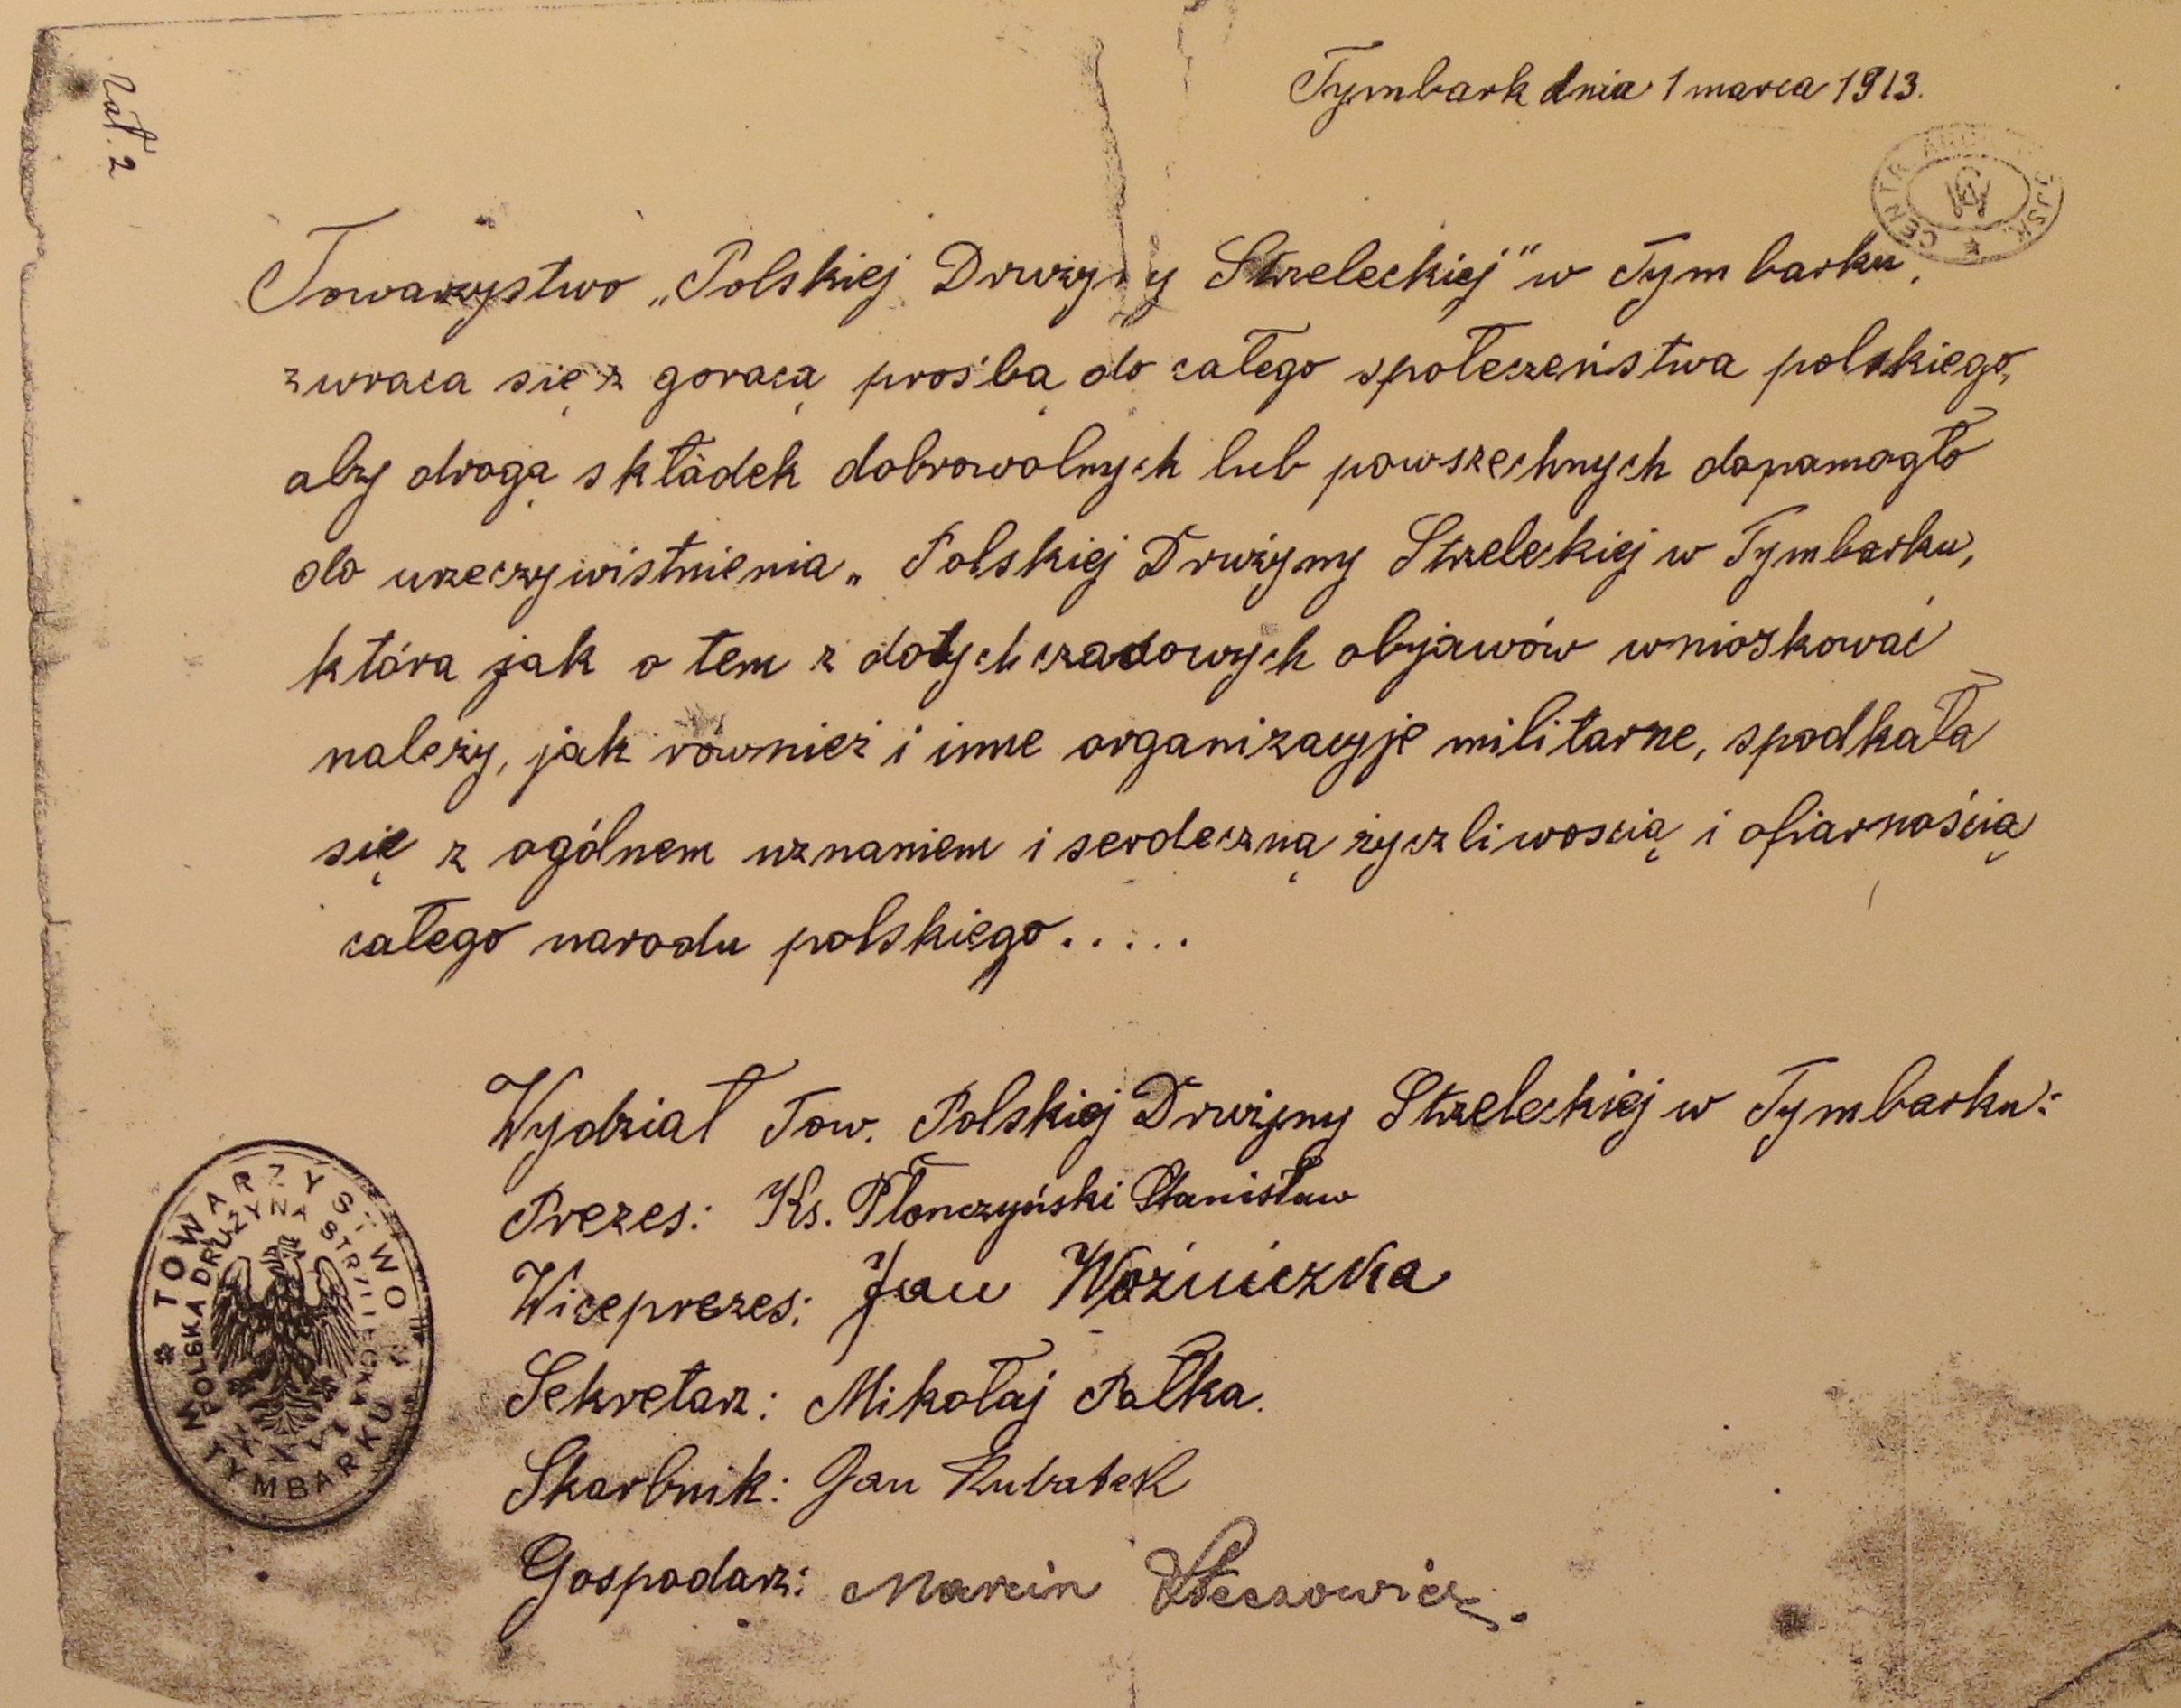 Zał. 2
Tymbark dnia 1 marca 1913.
Towarzystwo „Polskiej Drużyny Strzeleckiej" w Tymbarku,
zwraca się z goracą prośbą do całego społeczeństwa polskiego,
aby drogą składek dobrowolnych lub powszechnych dopamogło
do urzeczywistnienia „ Polskiej Drużyny Strzeleckiej w Tymbarku,
która jak o tem z dotychczasowych objawów wnioskować
należy, jak również i inne organizacyje militarne, spodkała
się z ogólnem uznaniem i serdeczną życzliwoscią i ofiarnością
całego narodu polskiego.....
Wydział Tow. Polskiej Drużyny Strzeleckiej w Tymbarku:
Prezes: Ks. Płonczyński Stanisław
Wiceprezes: Jan Woźniczka
Sekretarz: Mikołaj Pałka.
Skarbnik: Jan Kubatek
Gospodarz: Marcin
TOWARZYSTWO
POLSKA DRUŻYNA STRZELECKA
W TYMBARKU
CENTR